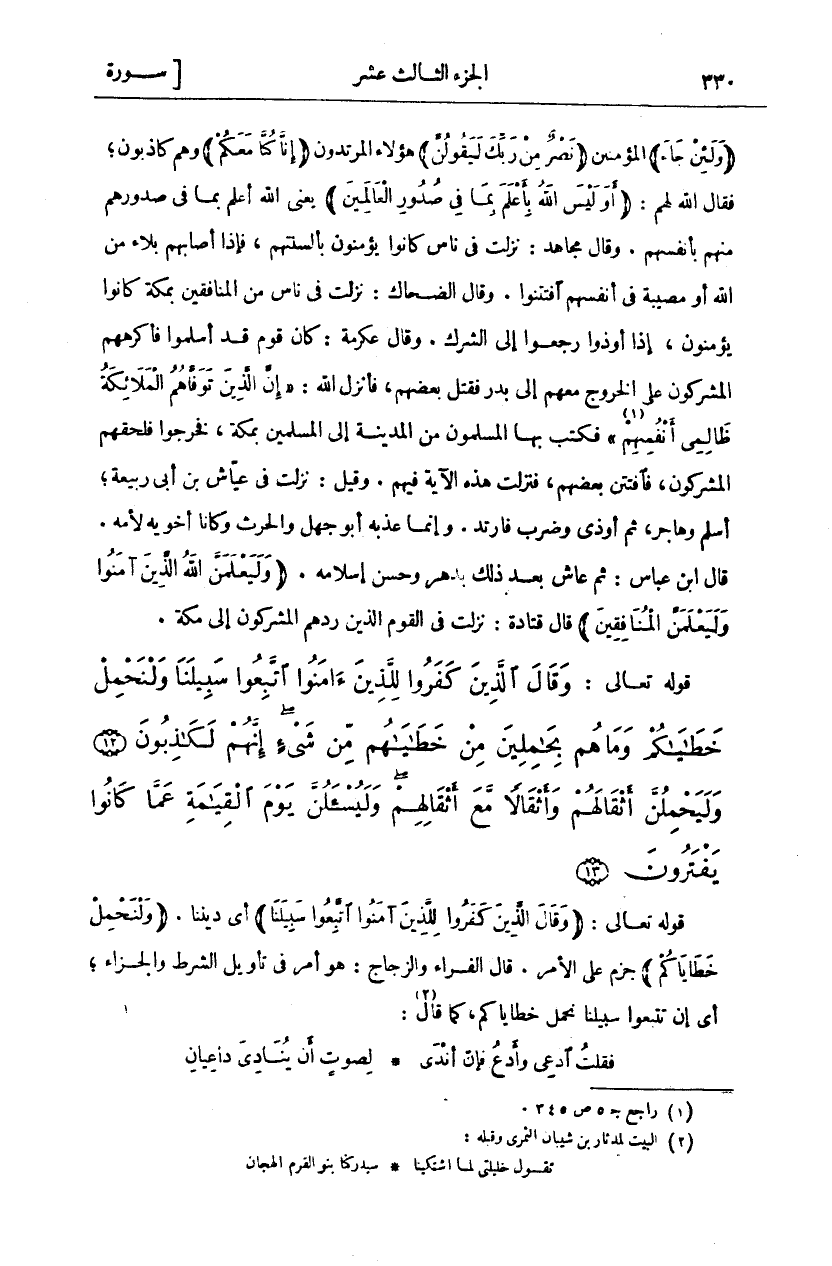 ٣٣٠ الجزء الثالث عشر [ سورة
﴿وَلَئِنْ جَاءَ﴾ المؤمنين ﴿نَصْرٌ مِنْ رَبِّكَ لَيَقُولُنَّ﴾ هؤلاء المرتدون ﴿إِنَّا كُنَّا مَعَكُمْ﴾ وهم كاذبون؛
فقال الله لهم : ﴿أَوَلَيْسَ اللهُ بِأَعْلَمَ بِمَا فِى صُدُورِ الْعَالَمِينَ﴾ يعنى الله أعلم بما فى صدورهم
منهم بأنفسهم . وقال مجاهد : نزلت فى ناس كانوا يؤمنون بألسنتهم ، فإذا أصابهم بلاء من
الله أو مصيبة فى أنفسهم آفتتنوا . وقال الضحاك : نزلت فى ناس من المنافقين بمكة كانوا
يؤمنون ، إذا أوذوا رجعوا إلى الشرك . وقال عكرمة : كان قوم قد أسلموا فأكرههم
المشركون على الخروج معهم إلى بدر فقتل بعضهم، فأنزل الله : « إِنَّ الَّذِينَ تَوَفَّاهُمُ الْمَلَائِكَةُ
ظَالِمِى أَنْفُسِهِمْ(١) » فكتب بها المسلمون من المدينة إلى المسلمين بمكة ، فخرجوا فلحقهم
المشركون، فآفتتن بعضهم، فنزلت هذه الآية فيهم . وقيل : نزلت فى عيّاش بن أبى ربيعة؛
أسلم وهاجر، ثم أوذى وضرب فارتد . وإنما عذبه أبو جهل والحرث وكانا أخويه لأمه .
قال ابن عباس : ثم عاش بعد ذلك بدهر وحسن إسلامه . ﴿وَلَيَعْلَمَنَّ اللهُ الَّذِينَ آمَنُوا
وَلَيَعْلَمَنَّ الْمُنَافِقِينَ﴾ قال قتادة : نزلت فى القوم الذين ردهم المشركون إلى مكة .
قوله تعالى : وَقَالَ ٱلَّذِينَ كَفَرُوا لِلَّذِينَ ءَامَنُوا ٱتَّبِعُوا سَبِيلَنَا وَلْنَحْمِلْ
خَطَٰيَٰكُمْ وَمَا هُم بِحَٰمِلِينَ مِنْ خَطَٰيَٰهُم مِّن شَىْءٍ ۖ إِنَّهُمْ لَكَٰذِبُونَ ١٢
وَلَيَحْمِلُنَّ أَثْقَالَهُمْ وَأَثْقَالًا مَّعَ أَثْقَالِهِمْ ۖ وَلَيُسْـَٔلُنَّ يَوْمَ ٱلْقِيَٰمَةِ عَمَّا كَانُوا
يَفْتَرُونَ ١٣
قوله تعالى : ﴿وَقَالَ الَّذِينَ كَفَرُوا لِلَّذِينَ آمَنُوا ٱتَّبِعُوا سَبِيلَنَا﴾ أى ديننا . ﴿وَلْنَحْمِلْ
خَطَايَاكُمْ﴾ جزم على الأمر . قال الفراء والزجاج : هو أمر فى تأويل الشرط والجزاء ؛
أى إن تتبعوا سبيلنا نحمل خطاياكم، كما قال(٢) :
فقلتُ ٱدعِى وأَدعُ فإنّ أندَى * لِصوتٍ أن يُنَادِىَ داعِيانِ
(١) راجع جـ ٥ ص ٣٤٥ .
(٢) البيت لمدثار بن شيبان النمرى وقبله :
تقول خليلتى لما اشتكينا * سيدركنا بنو القرم الهجان